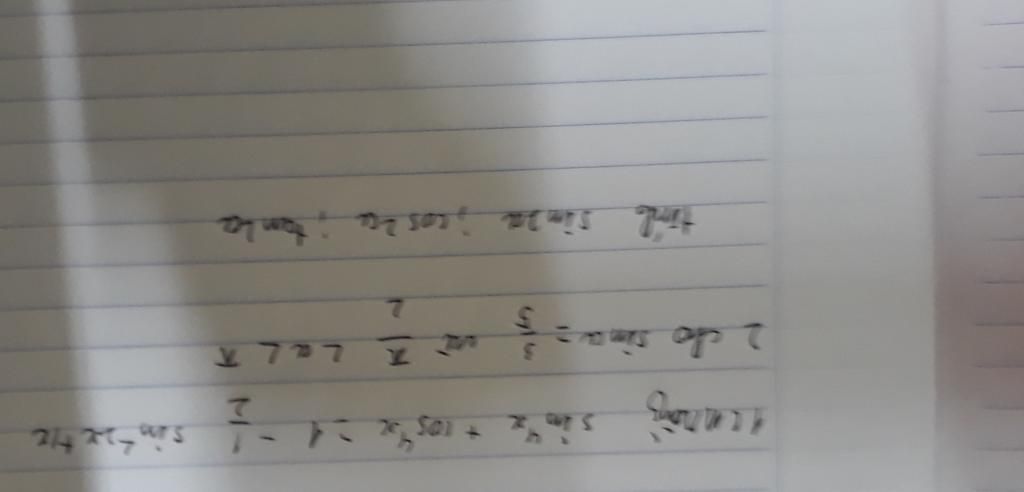 sin⁴x + cos⁴x = 1 - 1/2 sin²2x
2 cho sina = 3/5 và π/2 < a < π
tính sin2a ; cos2a ; tan2a